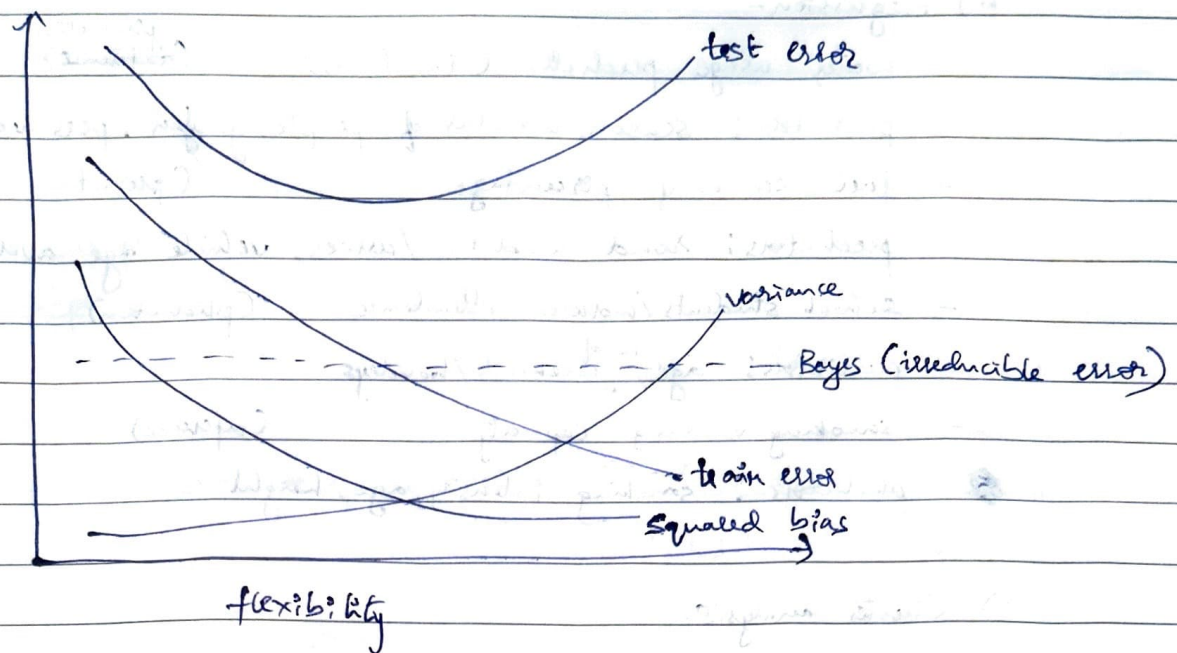 test error
variance
Bayes (irreducible error)
train error
squared bias
flexibility